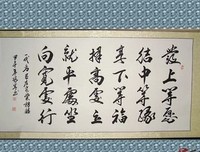 發上等愿
結中等緣
享下等福
擇高處立
就平處坐
向寬處行